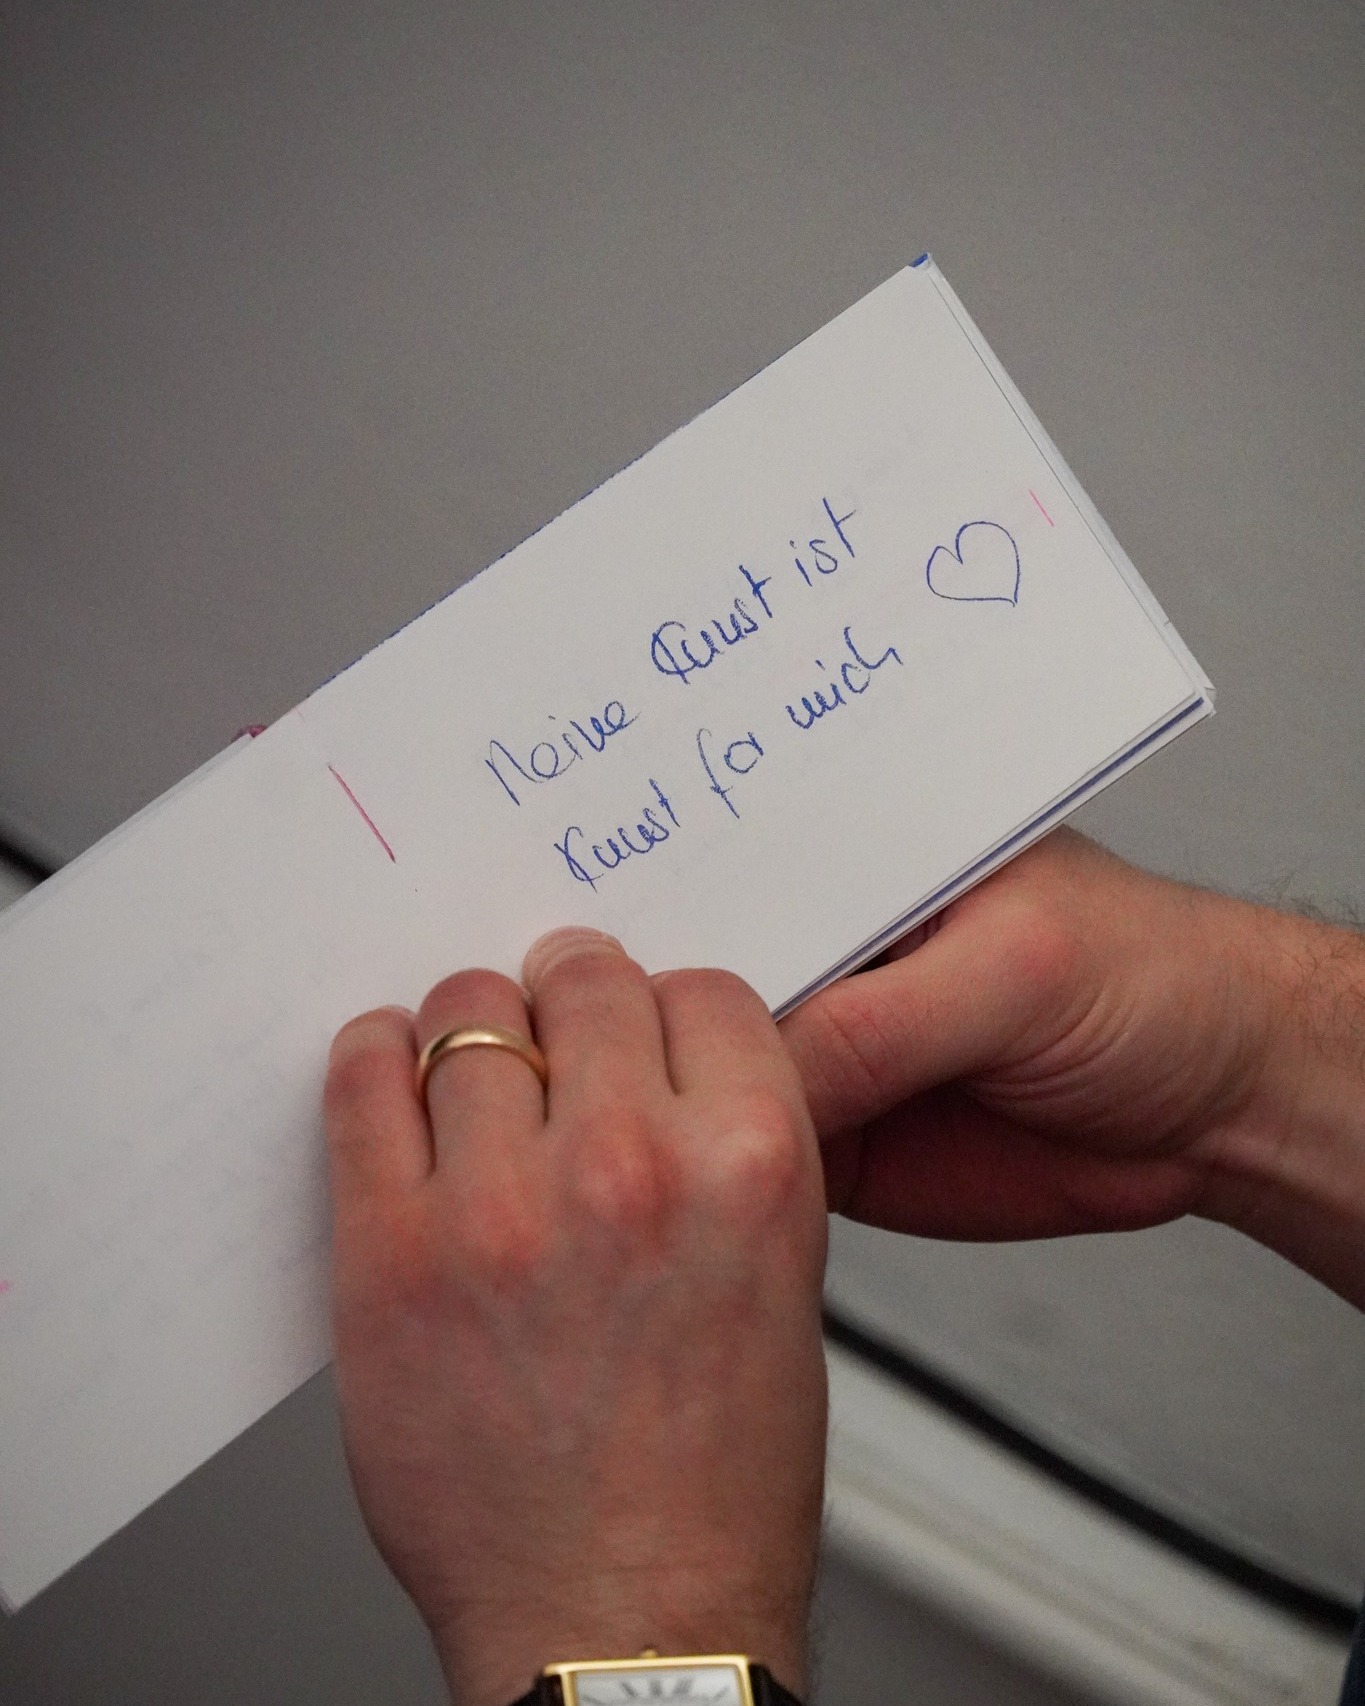 Meine Kunst ist
Kunst for mich